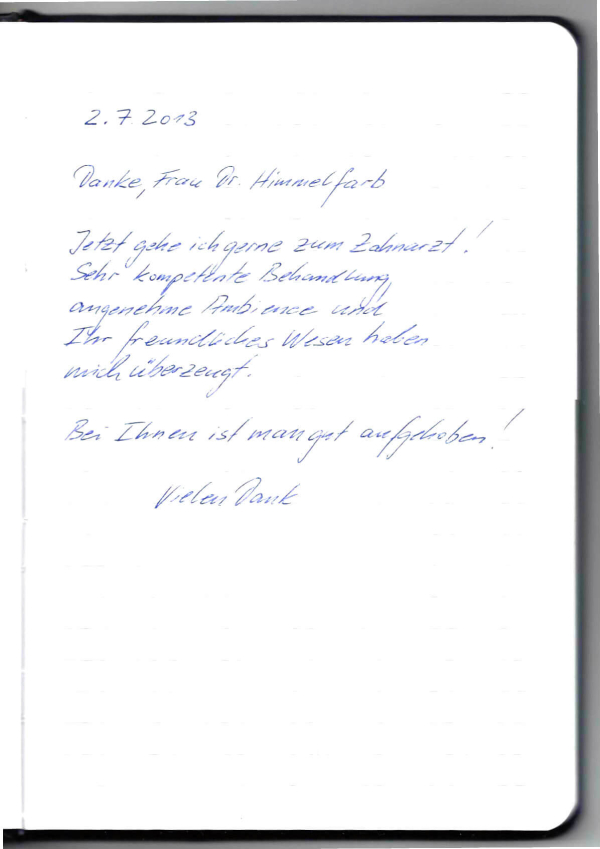 2.7.2013
Danke, Frau Dr. Himmelfarb
Jetzt gehe ich gerne zum Zahnarzt!
Sehr kompetente Behandlung,
angenehme Ambience und
Ihr freundliches Wesen haben
mich überzeugt.
Bei Ihnen ist man gut aufgehoben!
Vielen Dank